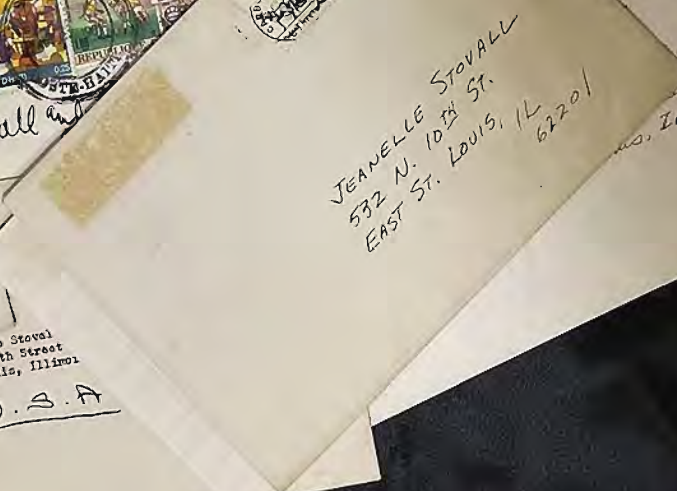 REPUBLIC
all and
JEANELLE STOVALL
532 N. 10TH ST.
EAST ST. LOUIS, IL
62201
Stoval
th Street
is, Illinoi
.S.A